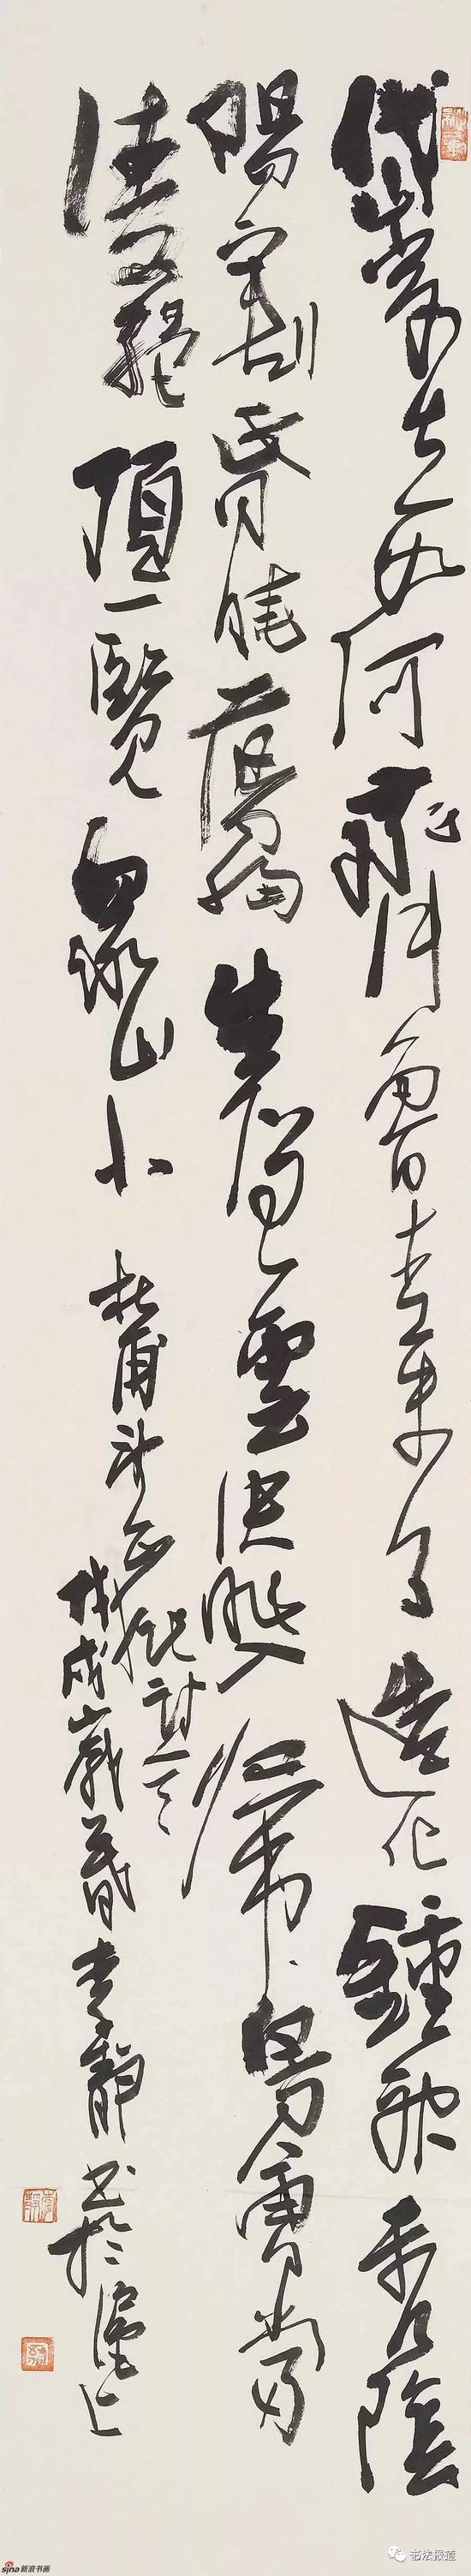 岱宗夫如何齊魯青未了造化鍾神秀陰
陽割昏曉蕩胸生層雲決眥入歸鳥會當
凌絕頂一覽眾山小 杜甫
戊戌歲暮李靜書於滬上
sina新浪书画
书法报道